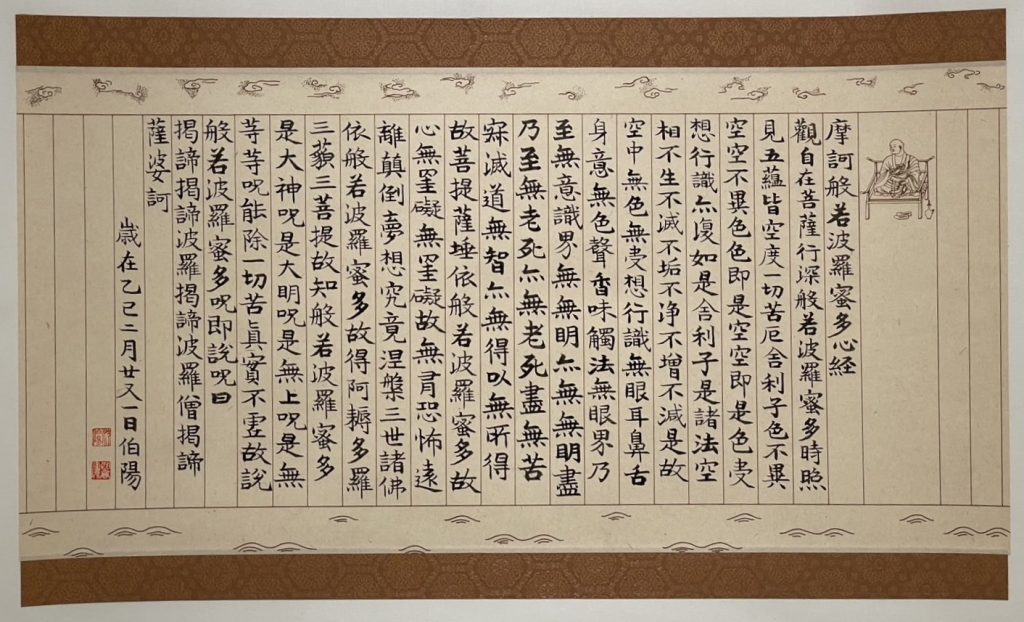 摩訶般若波羅蜜多心経
觀自在菩薩行深般若波羅蜜多時照
見五蘊皆空度一切苦厄舍利子色不異
空空不異色色即是空空即是色受
想行識亦復如是舍利子是諸法空
相不生不滅不垢不净不增不減是故
空中無色無受想行識無眼耳鼻舌
身意無色聲香味觸法無眼界乃
至無意識界無無明亦無無明盡
乃至無老死亦無老死盡無苦
寂滅道無智亦無得以無所得
故菩提薩埵依般若波羅蜜多故
心無罣礙無罣礙故無有恐怖遠
離顛倒夢想究竟涅槃三世諸佛
依般若波羅蜜多故得阿耨多羅
三藐三菩提故知般若波羅蜜多
是大神呪是大明呪是無上呪是無
等等呪能除一切苦真實不虛故說
般若波羅蜜多呪即說呪曰
揭諦揭諦波羅揭諦波羅僧揭諦
薩婆訶
歲在乙巳二月廿又一日伯陽